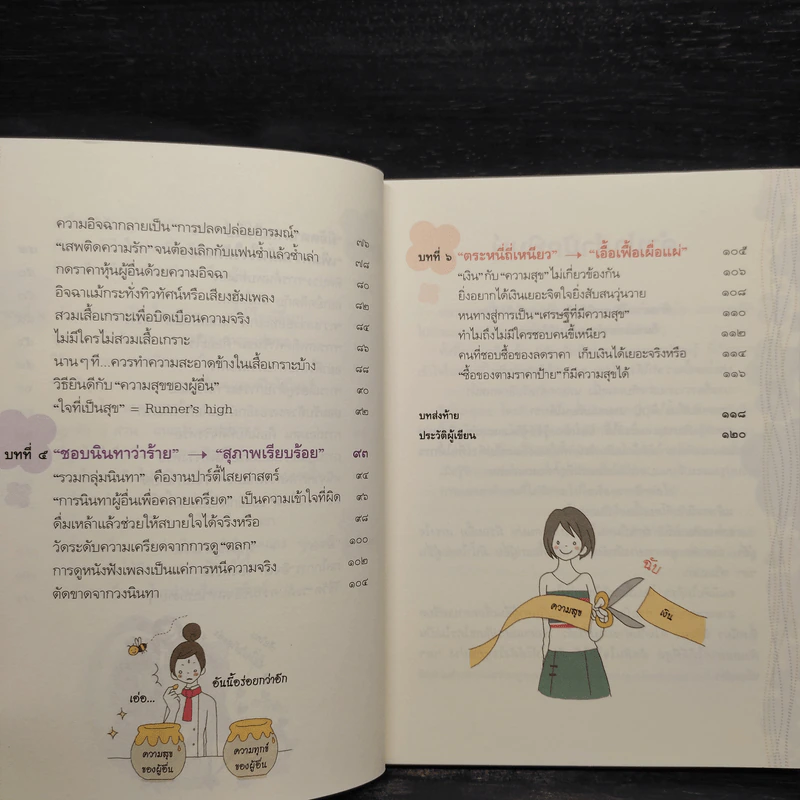 ความอิจฉากลายเป็น “การปลดปล่อยอารมณ์” ๗๖
“เสพติดความรัก” จนต้องเลิกกับแฟนซ้ำแล้วซ้ำเล่า ๗๘
กดราคาหุ้นผู้อื่นด้วยความอิจฉา ๘๐
อิจฉาแม้กระทั่งทิวทัศน์หรือเสียงฮัมเพลง ๘๒
สวมเสื้อเกราะเพื่อบิดเบือนความจริง ๘๔
ไม่มีใครไม่สวมเสื้อเกราะ ๘๖
นานๆ ที...ควรทำความสะอาดข้างในเสื้อเกราะบ้าง ๘๘
วิธียินดีกับ “ความสุขของผู้อื่น” ๙๐
“ใจที่เป็นสุข” = Runner's high ๙๒
บทที่ ๕ “ชอบนินทาว่าร้าย” → “สุภาพเรียบร้อย” ๙๓
“รวมกลุ่มนินทา” คืองานปาร์ตี้ไสยศาสตร์ ๙๔
“การนินทาผู้อื่นเพื่อคลายเครียด” เป็นความเข้าใจที่ผิด ๙๖
ดื่มเหล้าแล้วช่วยให้สบายใจได้จริงหรือ ๙๘
วัดระดับความเครียดจากการดู “ตลก” ๑๐๐
การดูหนังฟังเพลงเป็นแค่การหนีความจริง ๑๐๒
ตัดขาดจากวงนินทา ๑๐๔
เอ่อ...
อันนี้อร่อยกว่าอีก
ความสุข
ของผู้อื่น
ความทุกข์
ของผู้อื่น
บทที่ ๖ “ตระหนี่ถี่เหนียว” → “เอื้อเฟื้อเผื่อแผ่” ๑๐๕
“เงิน” กับ “ความสุข” ไม่เกี่ยวข้องกัน ๑๐๖
ยิ่งอยากได้เงินเยอะจิตใจยิ่งสับสนวุ่นวาย ๑๐๘
หนทางสู่การเป็น “เศรษฐีที่มีความสุข” ๑๑๐
ทำไมถึงไม่มีใครชอบคนขี้เหนียว ๑๑๒
คนที่ชอบซื้อของลดราคา เก็บเงินได้เยอะจริงหรือ ๑๑๔
“ซื้อของตามราคาป้าย” ก็มีความสุขได้ ๑๑๖
บทส่งท้าย ๑๑๘
ประวัติผู้เขียน ๑๒๐
ฉับ
ความสุข
เงิน